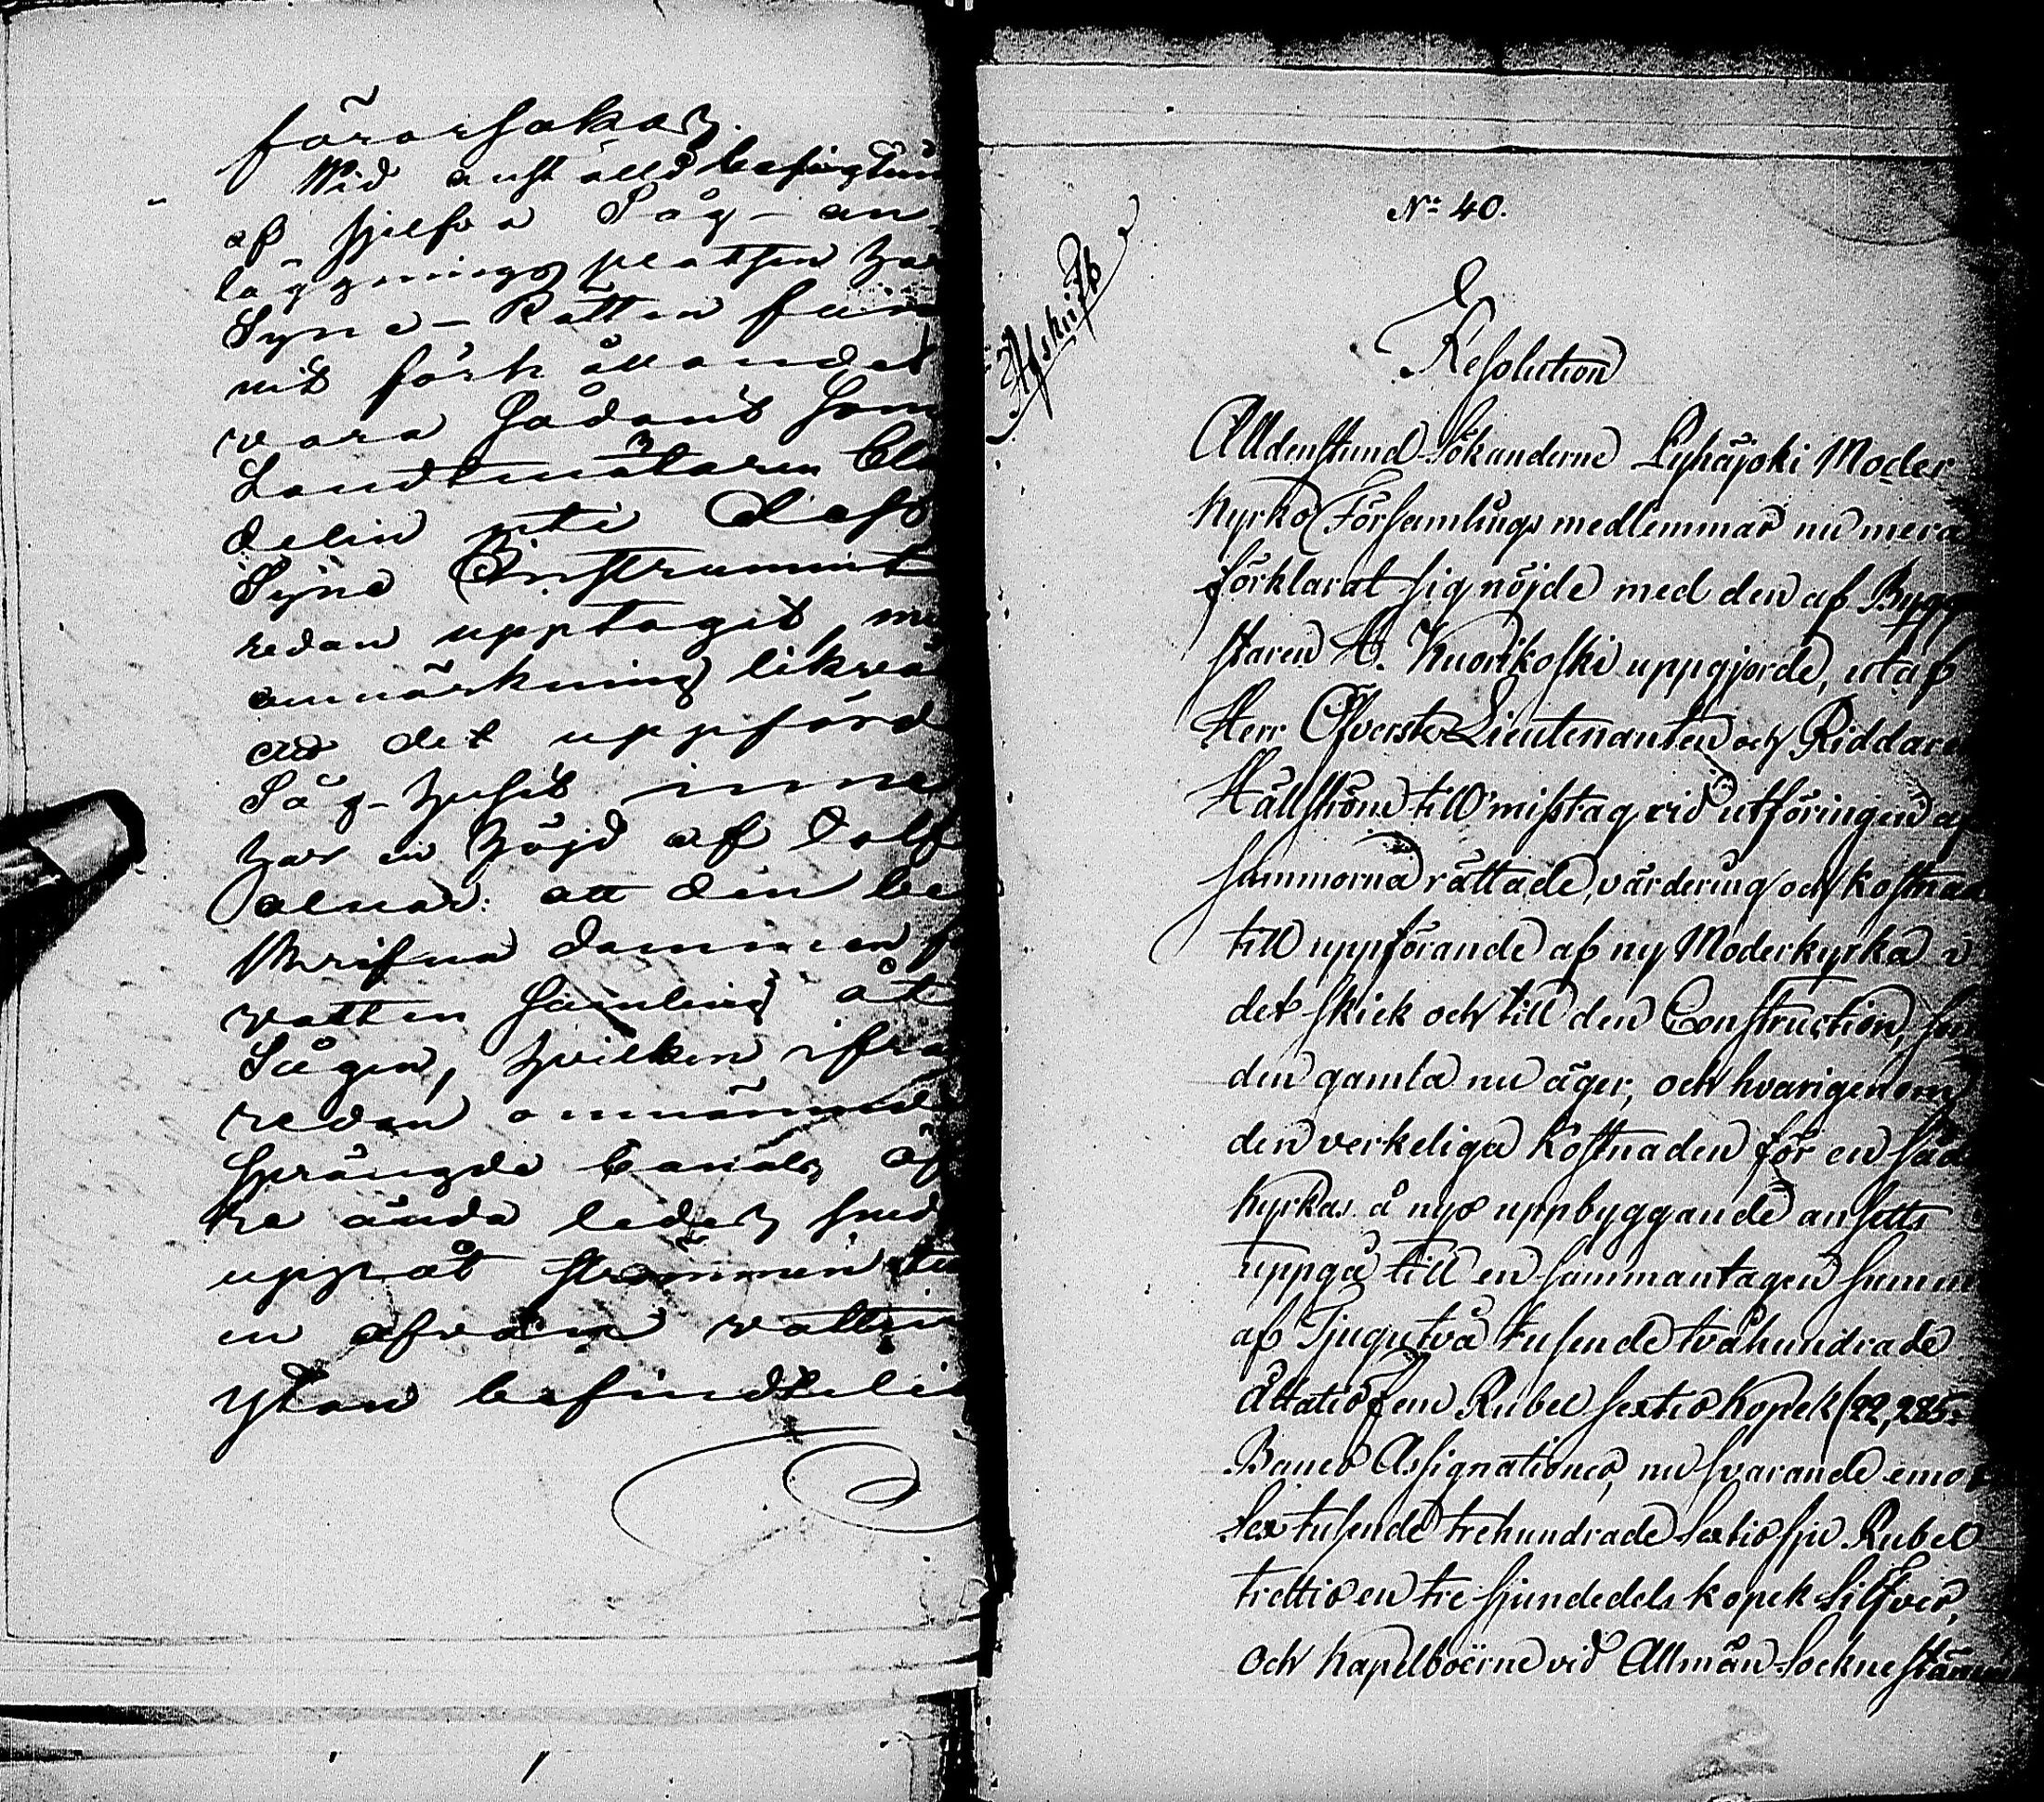 förorsakar.
Wid anstäld besigtnin
af sjelfva Såg-an
läggnings platsen har
Syne-Rätten fun
nit förhållandet
vara sådant som
Landtmätaren Cla
delin uti dess
Syne Instrument
redan upptagit med
anmärkning likväl
att det uppförd
Såg-huset inne
har en höjd af tolf
alnar: att den be
skrifna dammen
vatten samling åt
Sågen, hvilken ifrån
redan omnämnde
sprängde kanals öf
re ända leder sned
uppåt strömmen
en ofvan vatten
ytan befindtelig
No 40.
Afskrift
Resolution
Alldenstund Sökanderne Pyhäjoki Moder
kyrko Församlings medlemmar nu mera
förklarat sig nöjde med den af Bygg
staren A. Kuorikoski uppgjorde, utaf
Herr Öfverste Lieutenanten och Riddaren
Hällström till misstag vid utföringen af
summorna rättade, värdering och kostnad
till uppförande af ny Moderkyrka i
det skick och till den Construction, som
den gamla nu äger, och hvarigenom
den verkeliga kostnaden för en såd
kyrkas å nyo uppbyggande ansetts
uppgå till en sammantagen summ
af Tjugutvå tusende tvåhundrade
åttatiofem Rubel sextio kopek (22,285:
Banco Assignationer, nu svarande emot
sex tusende trehundrade sextiosju Rubel
trettio en tre sjundedels kopek silfver,
och kapellboerne vid Allmän Sockne stämma